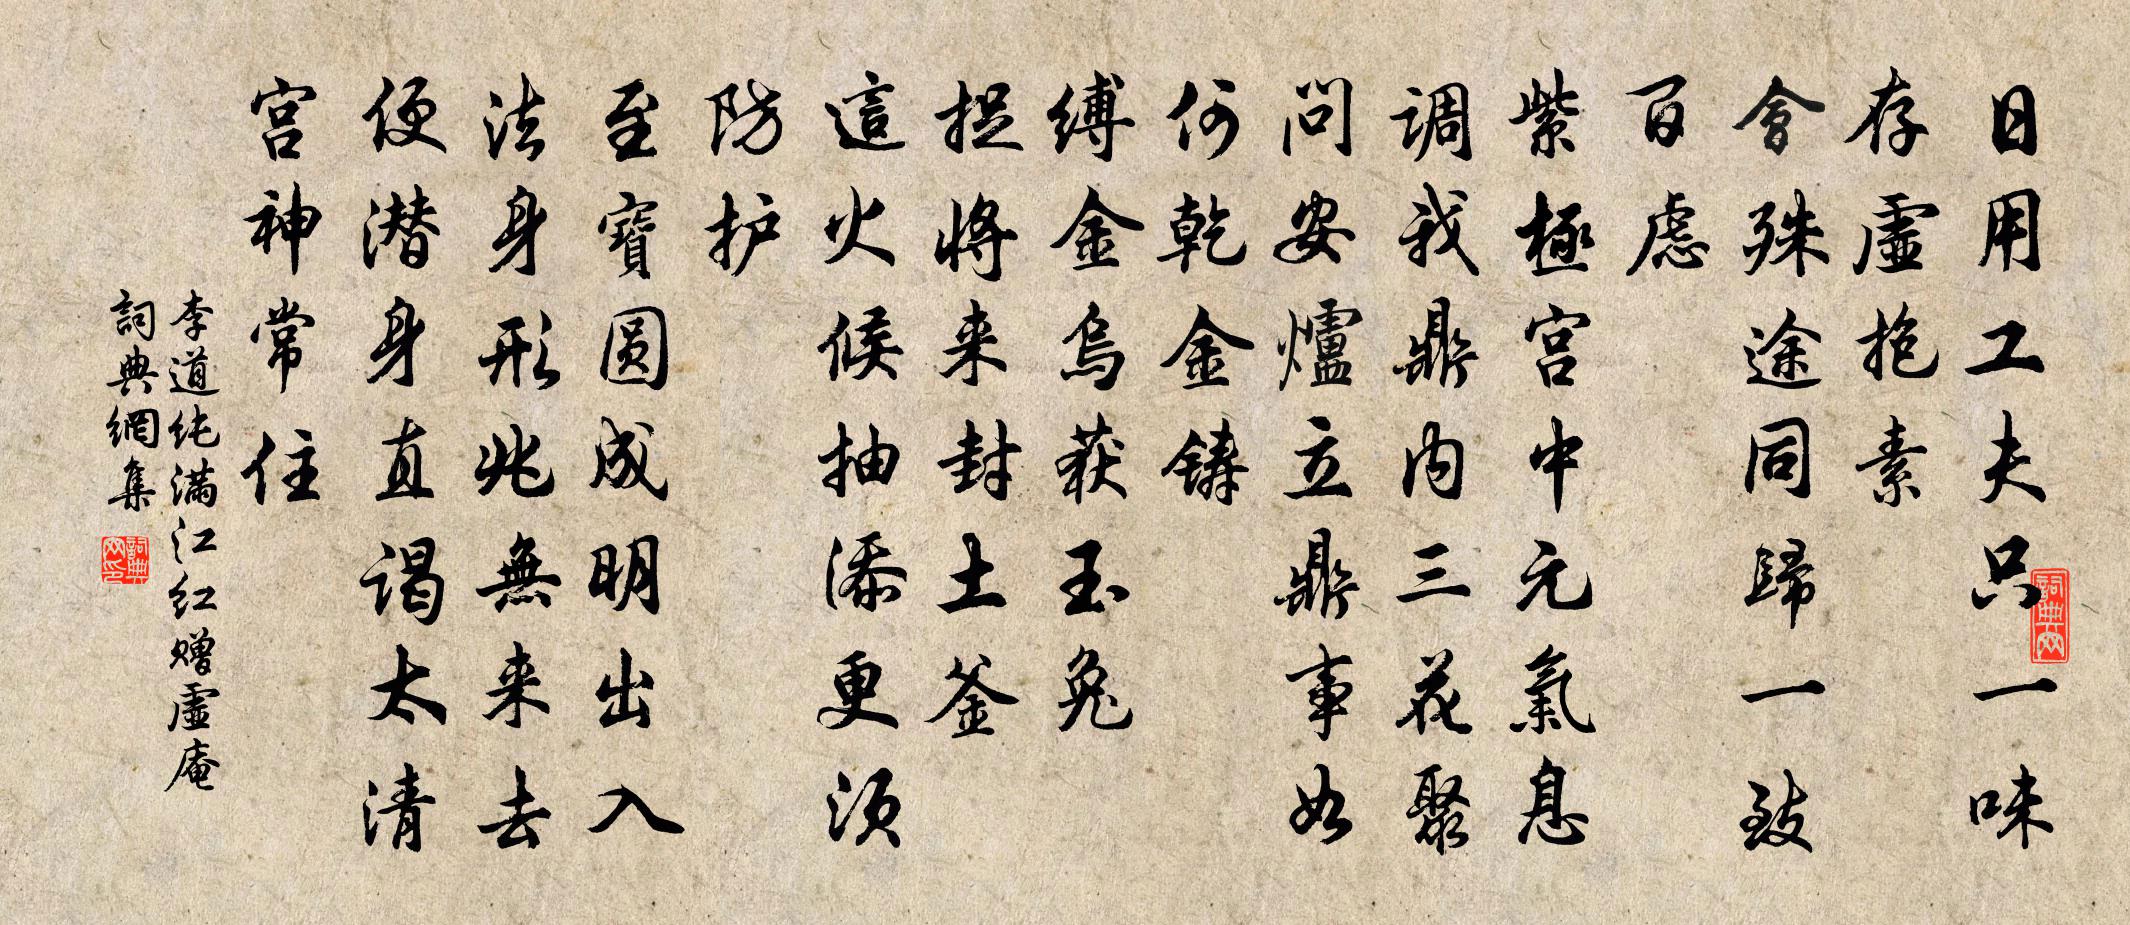 日用工夫只一味
存虛抱素
會殊途同歸一致
百慮
紫極宮中元氣息
调我鼎内三花聚
问安爐立鼎事如
何乾金鑄
缚金烏获玉兔
捉將来封土釜
這火候抽添更须
防护
至寶圆成明出入
法身形兆無来去
便潜身直谒太清
宮神常住
李道纯满江红赠虛庵
詞典網集
詞典网
詞典网印